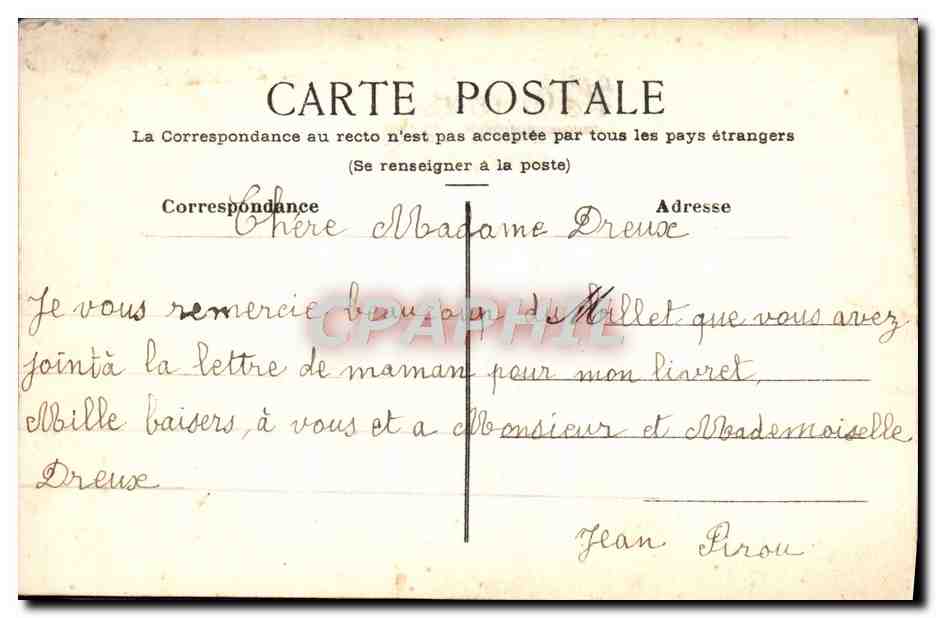 CARTE POSTALE
La Correspondance au recto n'est pas acceptée par tous les pays étrangers
(Se renseigner à la poste)
Correspondance
Adresse
Chére Madame Dreux
Je vous remercie beaucoup du Millet que vous avez
joint à la lettre de maman pour mon livret,
Mille baisers, à vous et a Monsieur et Mademoiselle
Dreux
Jean Pirou
CPAPHIL